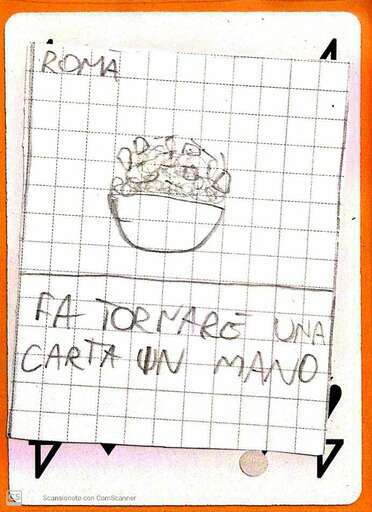 ROMA
FA TORNARE UNA
CARTA IN MANO
CS Scansionato con CamScanner